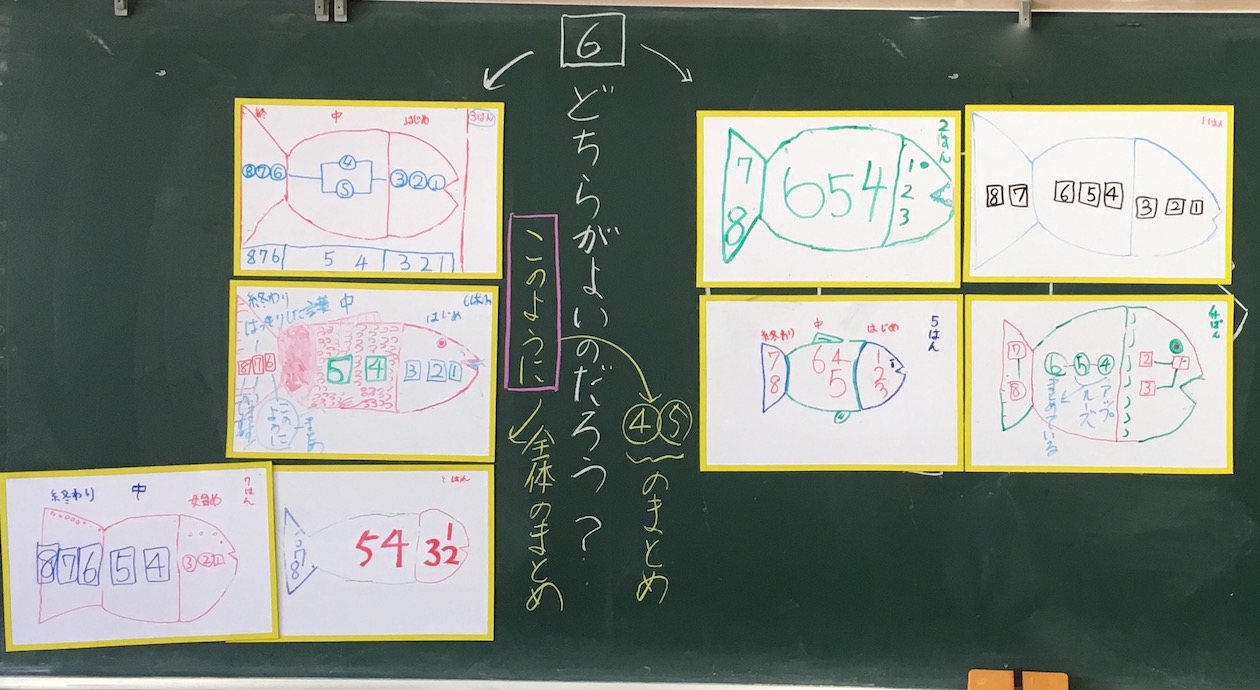 6
どちらがよいのだろう？
このように、
全体のまとめ
④⑤
のまとめ
3はん
終
中
はじめ
⑧⑦⑥
④
⑤
③②①
876
5 4
321
6はん
終わり
中
はじめ
8 7 6
5 4
3 2 1
このように
まとめ
7はん
終わり
中
始め
8 7 6
5 4
③②①
はん
54
1
32
7
8
2はん
7
8
654
1
2
3
1はん
8 7
6 5 4
3 2 1
5はん
終わり
中
はじめ
7
8
64
5
1
2
3
4はん
7
8
⑥⑤④
アップ
ルーズ
まとめている
2
1
3